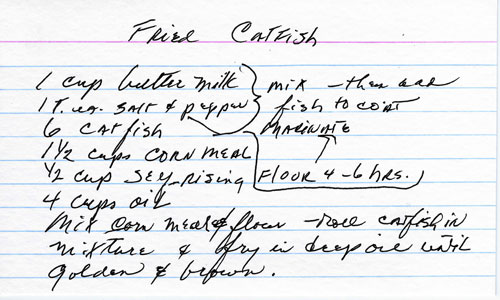 FRIED CATFISH
1 cup butter milk } mix - then add
1 T. ea. SALT & pepper } fish to COAT
6 CATfish MARINATE
1 1/2 cups CORN MEAL
1/2 cup SELf-Rising FLOUR 4-6 HRS.)
4 cups oil
Mix corn meal & flour - roll catfish in
mixture & fry in deep oil until
golden & brown.